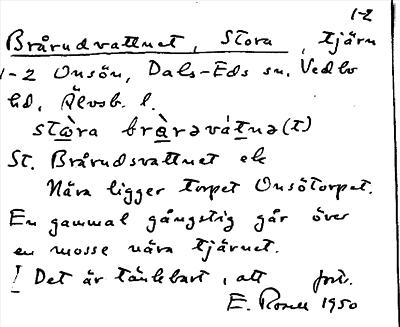 1-2
Brårudvattnet, Stora, tjärn
1-2 Onsön, Dals-Eds sn, Vedbo
hd, Älvsb. l.
stὼra bràrəvátnə(t)
St. Brårudsvattnet ek
Nära ligger torpet Onsötorpet.
En gammal gångstig går över
en mosse nära tjärnet.
! Det är tänkbart, att forts.
E. Rosell 1950